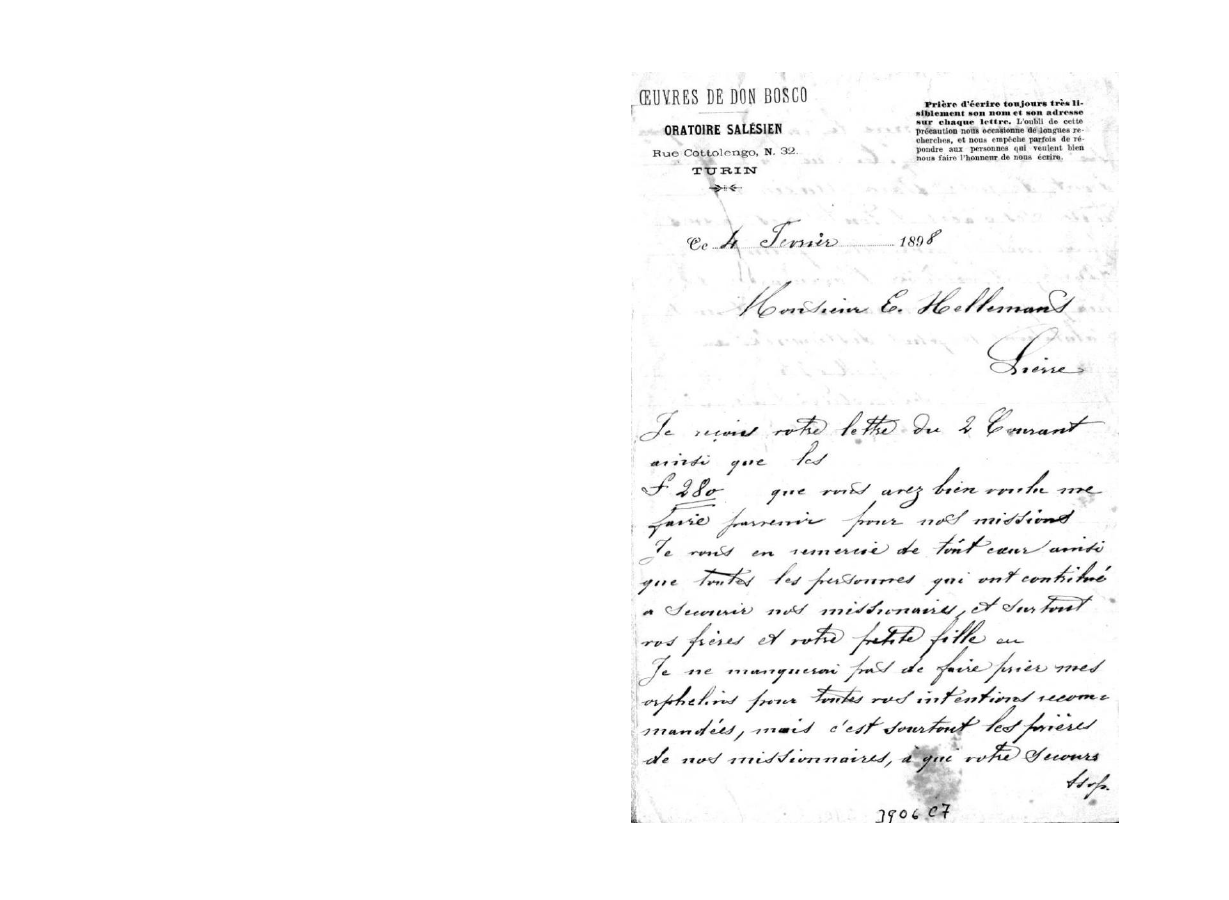 ŒUVRES DE DON BOSCO
ORATOIRE SALÉSIEN
Rue Cottolengo, N. 32.
TURIN
Prière d'écrire toujours très li-
siblement son nom et son adresse
sur chaque lettre. L'oubli de cette
précaution nous occasionne de longues re-
cherches, et nous empêche parfois de ré-
pondre aux personnes qui veulent bien
nous faire l'honneur de nous écrire.
Ce 4 Fevrier 1898
Monsieur E. Hellemans
Lierre
Je reçois votre lettre du 2 Courant
ainsi que les
F 280 que vous avez bien voulu me
faire parvenir pour nos missions
Je vous en remercie de tout cœur ainsi
que toutes les personnes qui ont contribué
a secourir nos missionaires, et surtout
vos frères et votre petite fille
Je ne manquerai pas de faire prier mes
orphelins pour toutes vos intentions recom-
mandées, mais c'est sourtout les prières
de nos missionnaires, à qui votre secours
3906 C7